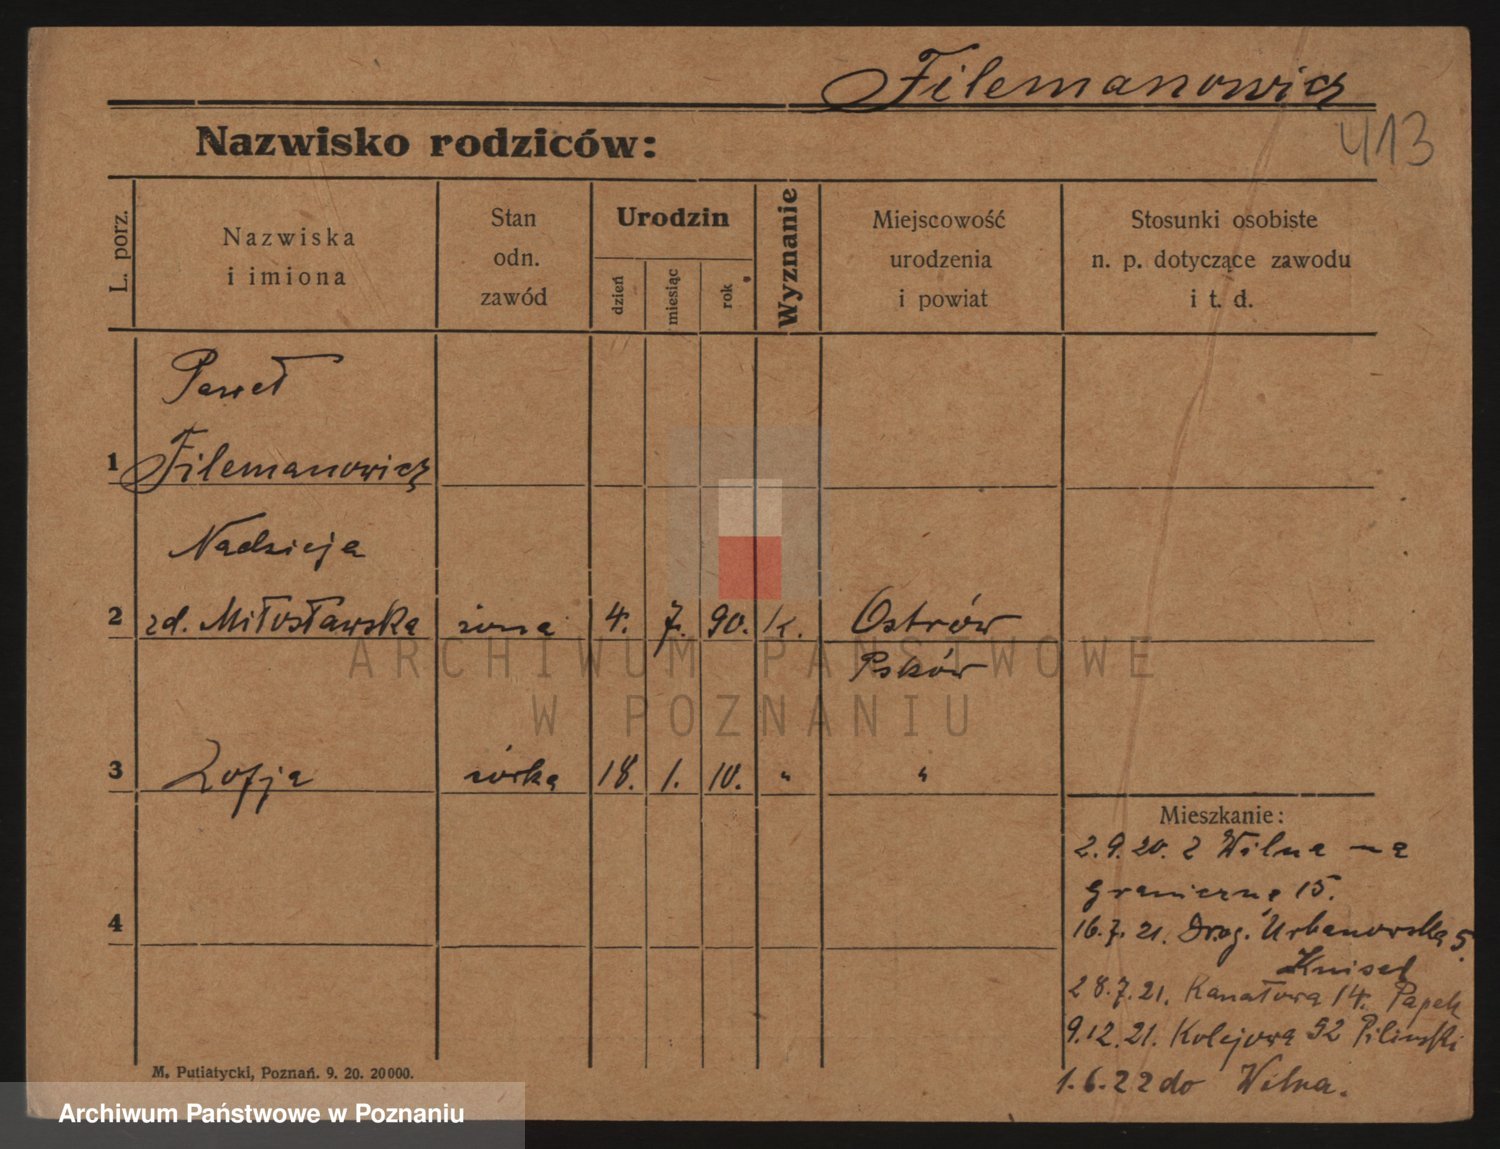 Filemanowicz
413
Nazwisko rodziców:
L. porz.
Nazwiska
i imiona
Stan
odn.
zawód
Urodzin
dzień
miesiąc
rok
Wyznanie
Miejscowość
urodzenia
i powiat
Stosunki osobiste
n. p. dotyczące zawodu
i t. d.
Paweł
1 Filemanowicz
Nadzieja
2 zd. Miłosławska żona 4. 7. 90. k. Ostrów
Psków
3 Zofja córka 18. 1. 10. " "
4
Mieszkanie:
2.9.20. z Wilna na
Graniczną 15.
16.7.21. Drog. Urbanowska 5.
28.7.21. Kanałowa 14. Papek
9.12.21. Kolejowa 52 Piliński
1.6.22 do Wilna.
M. Putiatycki, Poznań. 9. 20. 20000.
ARCHIWUM PAŃSTWOWE
W POZNANIU
Archiwum Państwowe w Poznaniu